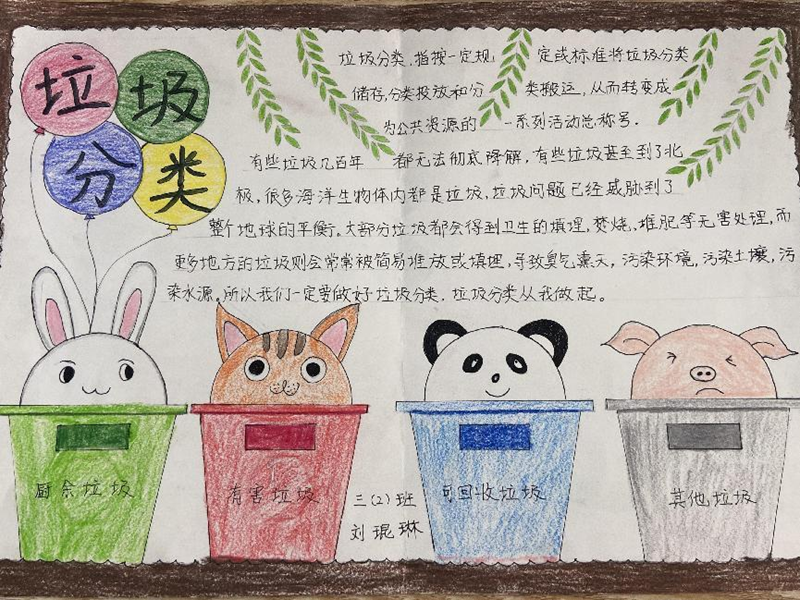 垃圾
分类
垃圾分类,指按一定规定或标准将垃圾分类
储存,分类投放和分类搬运,从而转变成
为公共资源的一系列活动总称号.
有些垃圾几百年都无法彻底降解,有些垃圾甚至到了北
极,很多海洋生物体内都是垃圾,垃圾问题已经威胁到了
整个地球的平衡.大部分垃圾都会得到卫生的填埋,焚烧,堆肥等无害处理,而
更多地方的垃圾则会常常被简易堆放或填埋,导致臭气熏天,污染环境,污染土壤,污
染水源.所以我们一定要做好垃圾分类.垃圾分类从我做起。
厨余垃圾
有害垃圾
三(2)班
刘琨琳
可回收垃圾
其他垃圾